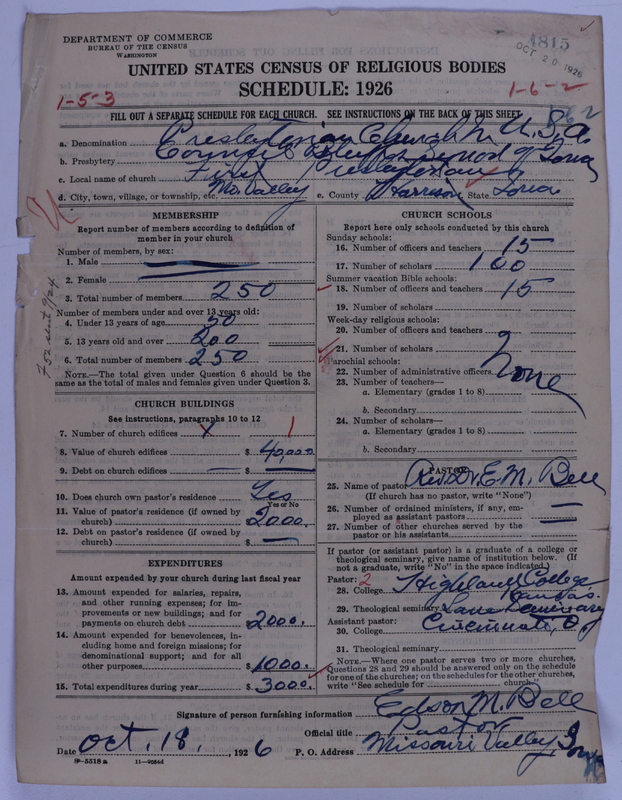 DEPARTMENT OF COMMERCE
BUREAU OF THE CENSUS
WASHINGTON
4815
OCT 20 1926
UNITED STATES CENSUS OF RELIGIOUS BODIES
SCHEDULE: 1926
1-5-3
1-6-2
FILL OUT A SEPARATE SCHEDULE FOR EACH CHURCH. SEE INSTRUCTIONS ON THE BACK OF THIS SHEET
a. Denomination Presbyterian Church in U.S.A.
b. Presbytery Council Bluffs Synod of Iowa
c. Local name of church First Presbyterian
d. City, town, village, or township, etc. Mo. Valley e. County Harrison State Iowa
MEMBERSHIP
Report number of members according to definition of member in your church
Number of members, by sex:
1. Male
2. Female
3. Total number of members 250
Number of members under and over 13 years old:
4. Under 13 years of age 50
5. 13 years old and over 200
6. Total number of members 250
NOTE.—The total given under Question 6 should be the same as the total of males and females given under Question 3.
CHURCH BUILDINGS
See instructions, paragraphs 10 to 12
7. Number of church edifices 1
8. Value of church edifices $ 40,000
9. Debt on church edifices — $ —
10. Does church own pastor's residence Yes
Yes or No
11. Value of pastor's residence (if owned by church) $ 2000.
12. Debt on pastor's residence (if owned by church) $ —
EXPENDITURES
Amount expended by your church during last fiscal year
13. Amount expended for salaries, repairs, and other running expenses; for improvements or new buildings; and for payments on church debt $ 2000.
14. Amount expended for benevolences, including home and foreign missions; for denominational support; and for all other purposes $ 1000.
15. Total expenditures during year $ 3000.
CHURCH SCHOOLS
Report here only schools conducted by this church
Sunday schools:
16. Number of officers and teachers 15
17. Number of scholars 100
Summer vacation Bible schools:
18. Number of officers and teachers 15
19. Number of scholars
Week-day religious schools:
20. Number of officers and teachers
21. Number of scholars
Parochial schools:
22. Number of administrative officers None
23. Number of teachers—
a. Elementary (grades 1 to 8)
b. Secondary
24. Number of scholars—
a. Elementary (grades 1 to 8)
b. Secondary
PASTOR
25. Name of pastor Rev. Dr. E. M. Bell
(If church has no pastor, write "None")
26. Number of ordained ministers, if any, employed as assistant pastors —
27. Number of other churches served by the pastor or his assistants —
If pastor (or assistant pastor) is a graduate of a college or theological seminary, give name of institution below. (If not a graduate, write "No" in the space indicated)
Pastor: 2
28. College Highland College Kansas.
29. Theological seminary Lane Seminary
Assistant pastor: Cincinnati, O.
30. College
31. Theological seminary
NOTE.—Where one pastor serves two or more churches, Questions 28 and 29 should be answered only on the schedule for one of the churches; on the schedules for the other churches, write "See schedule for church."
Signature of person furnishing information Edson M. Bell
Official title Pastor
Date Oct. 18, 1926 P. O. Address Missouri Valley, Iowa
8—5518 a